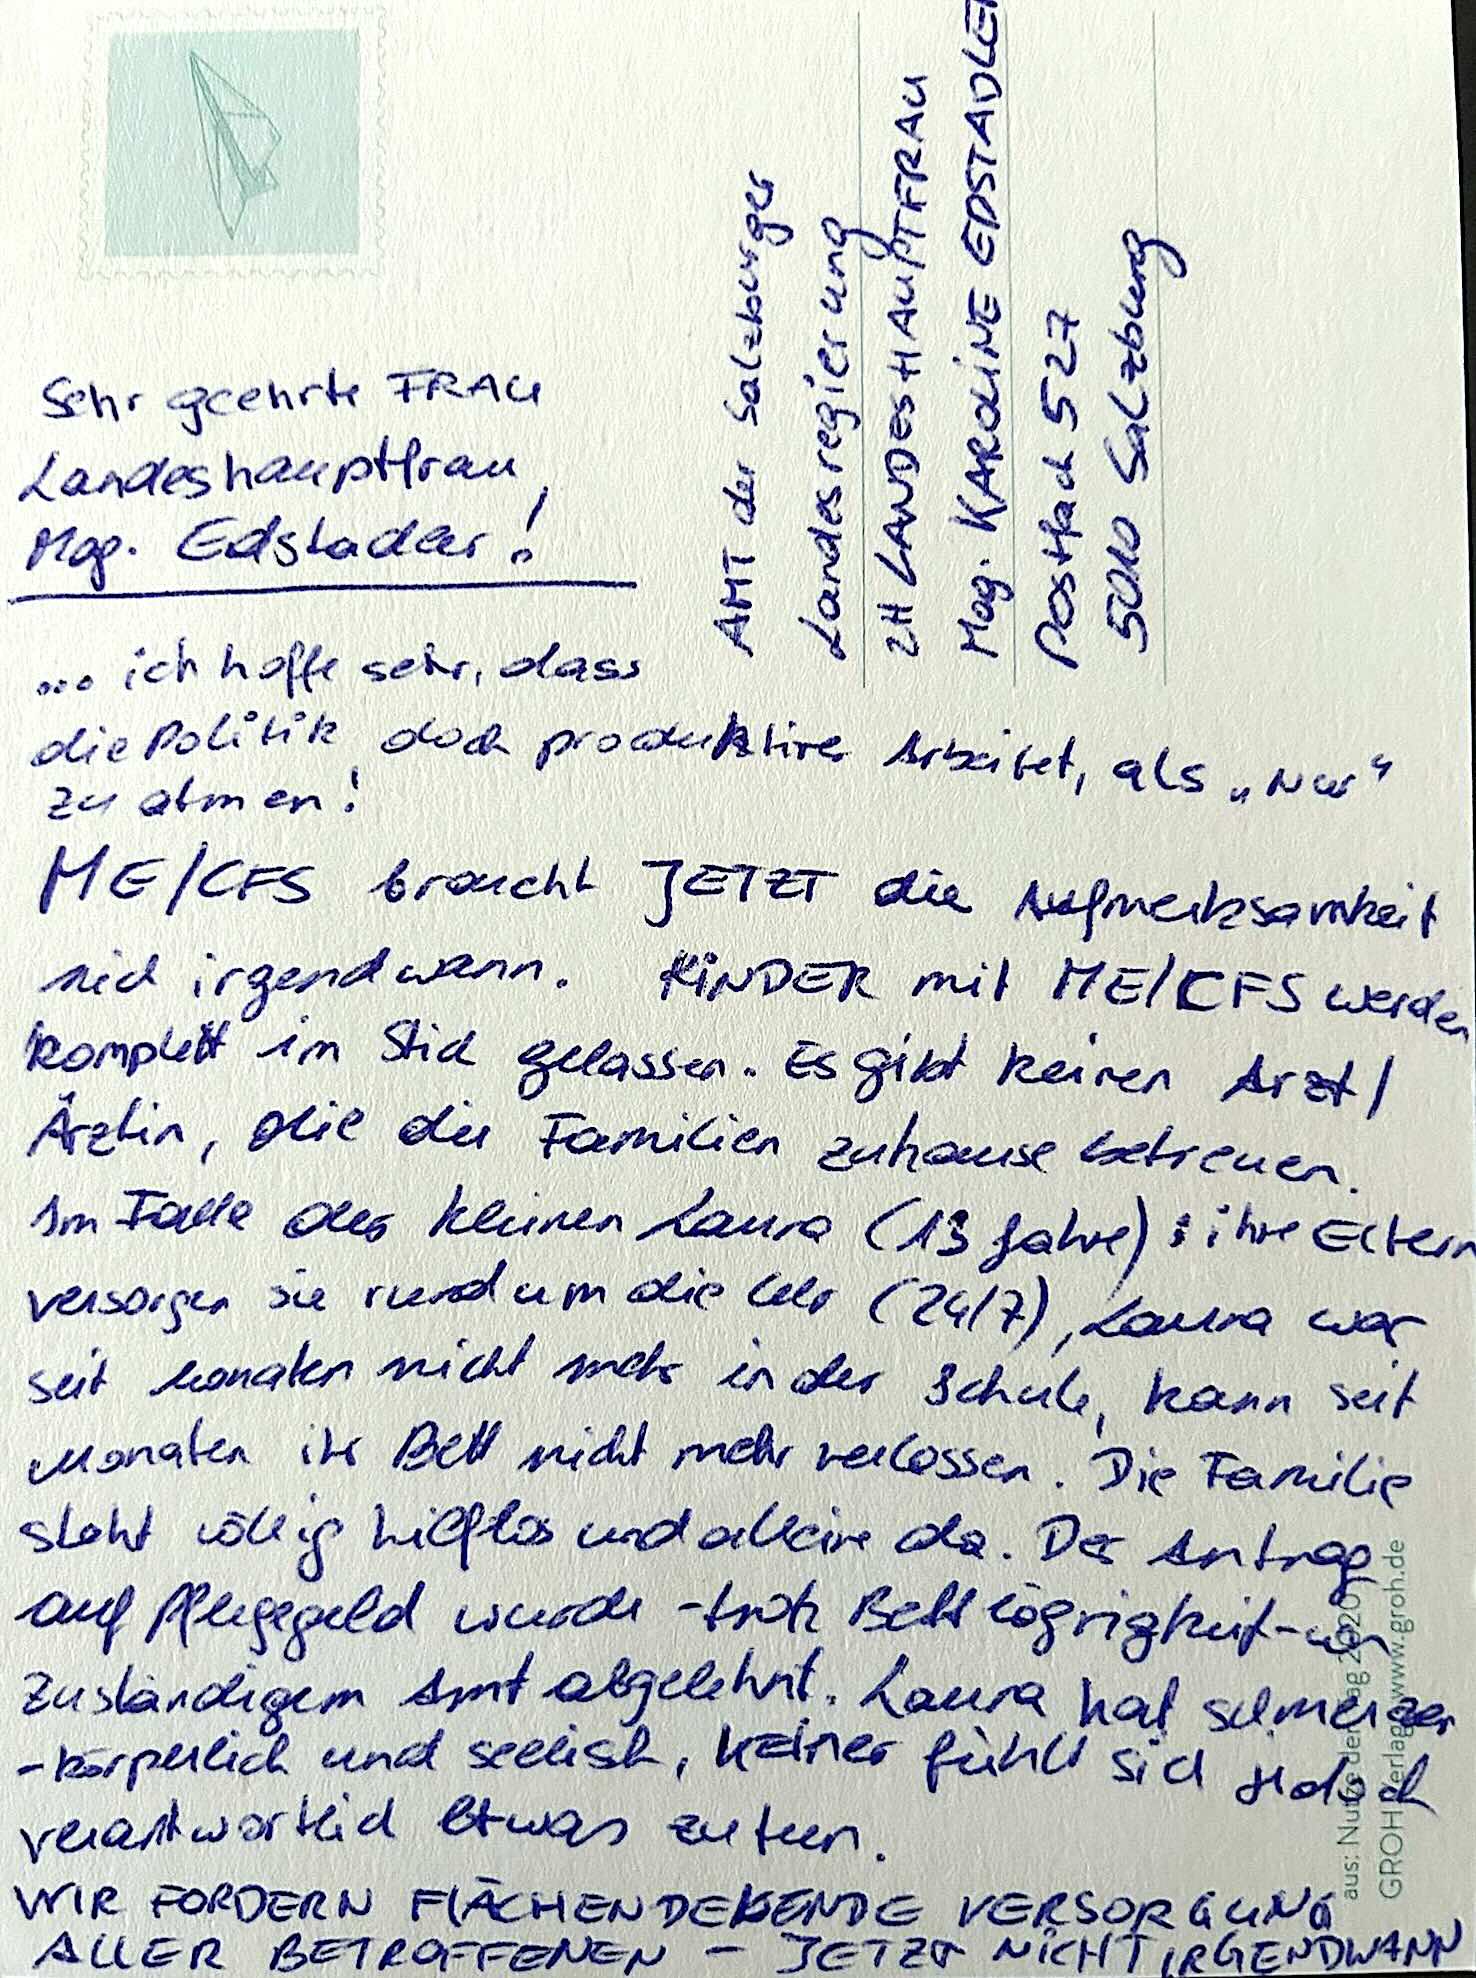 Sehr geehrte FRAU
Landeshauptfrau,
Mag. Edstadler!
... ich hoffe sehr, dass
die Politik doch produktiver Arbeitet, als „NUR“
zu atmen!
ME/CFS braucht JETZT die Aufmerksamkeit
nicht irgendwann. KINDER mit ME/CFS werden
komplett im Stich gelassen. Es gibt keinen Arzt/
Ärztin, die die Familien zuhause betreuen.
Im Falle der kleinen Laura (13 Jahre): ihre Eltern
versorgen sie rund um die Uhr (24/7), Laura war
seit Monaten nicht mehr in der Schule, kann seit
Monaten ihr Bett nicht mehr verlassen. Die Familie
steht völlig hilflos und alleine da. Der Antrag
auf Pflegegeld wurde -trotz Bettlägrigkeit- von
zuständigem Amt abgelehnt. Laura hat schmerzen
-körperlich und seelisch, keiner fühlt sich jedoch
verantwortlich etwas zu tun.
WIR FORDERN FLÄCHENDEKENDE VERSORGUNG
ALLER BETROFFENEN - JETZT NICHT IRGENDWANN
AMT der Salzburger
Landesregierung
ZH LANDESHAUPTFRAU
Mag. KAROLINE EDSTADLER
Postfach 527
5010 Salzburg
aus: Nutze den Tag 2020
GROH Verlag, www.groh.de